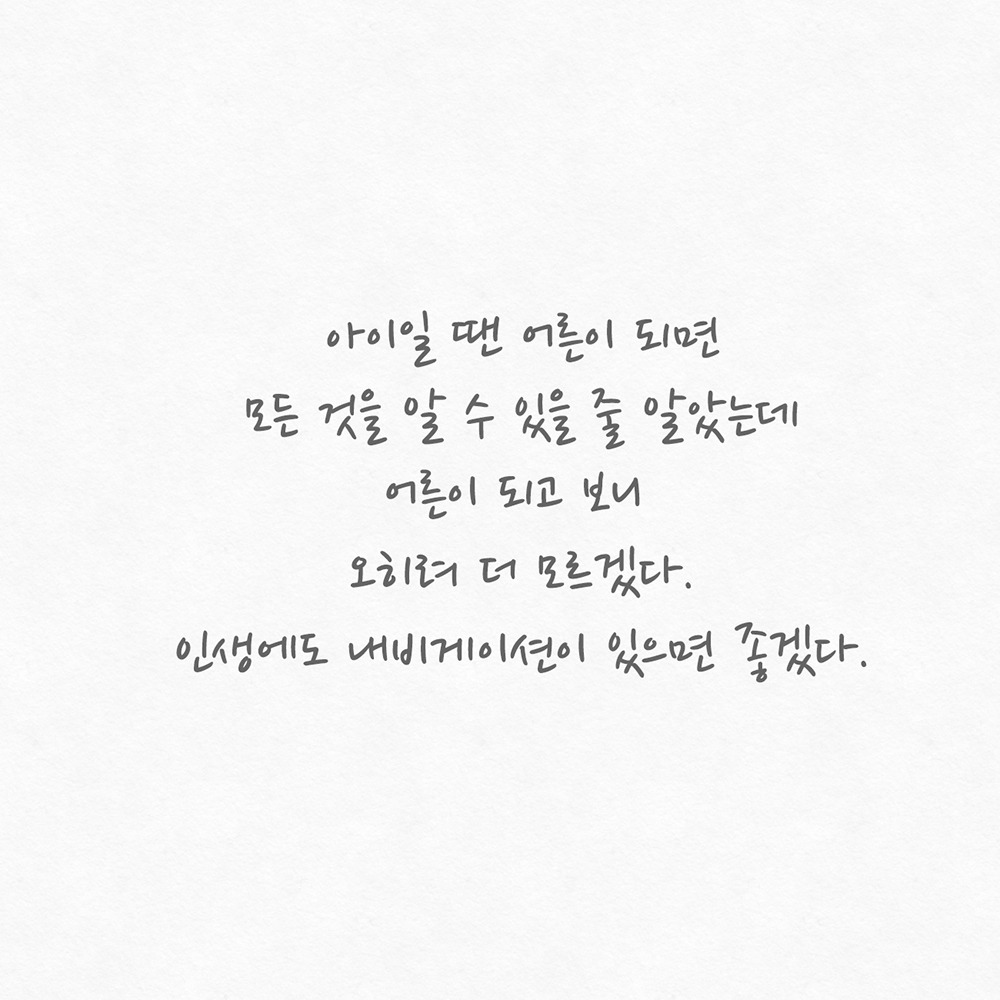 아이일 땐 어른이 되면
모든 것을 알 수 있을 줄 알았는데
어른이 되고 보니
오히려 더 모르겠다.
인생에도 내비게이션이 있으면 좋겠다.